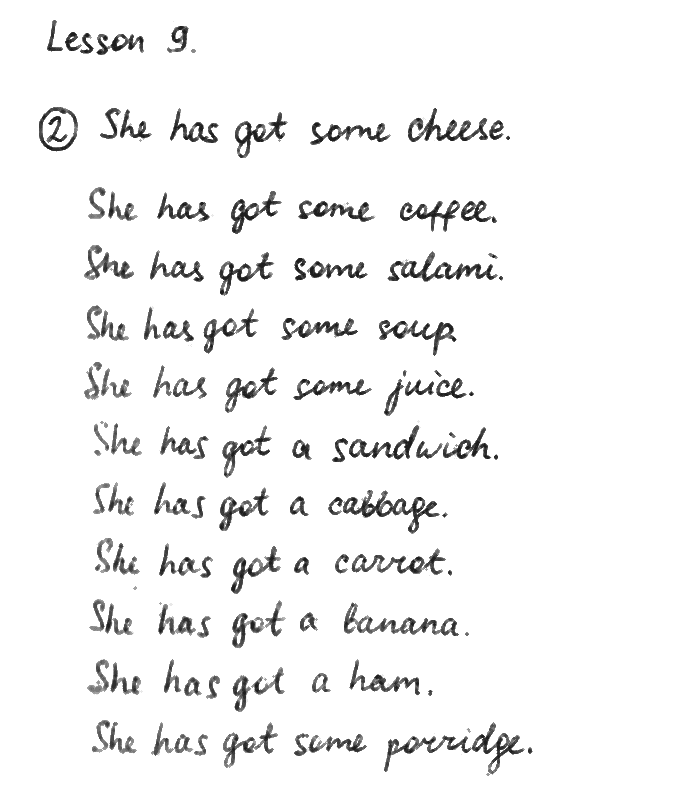 Lesson 9.
② She has got some cheese.
She has got some coffee.
She has got some salami.
She has got some soup.
She has got some juice.
She has got a sandwich.
She has got a cabbage.
She has got a carrot.
She has got a banana.
She has got a ham.
She has got some porridge.